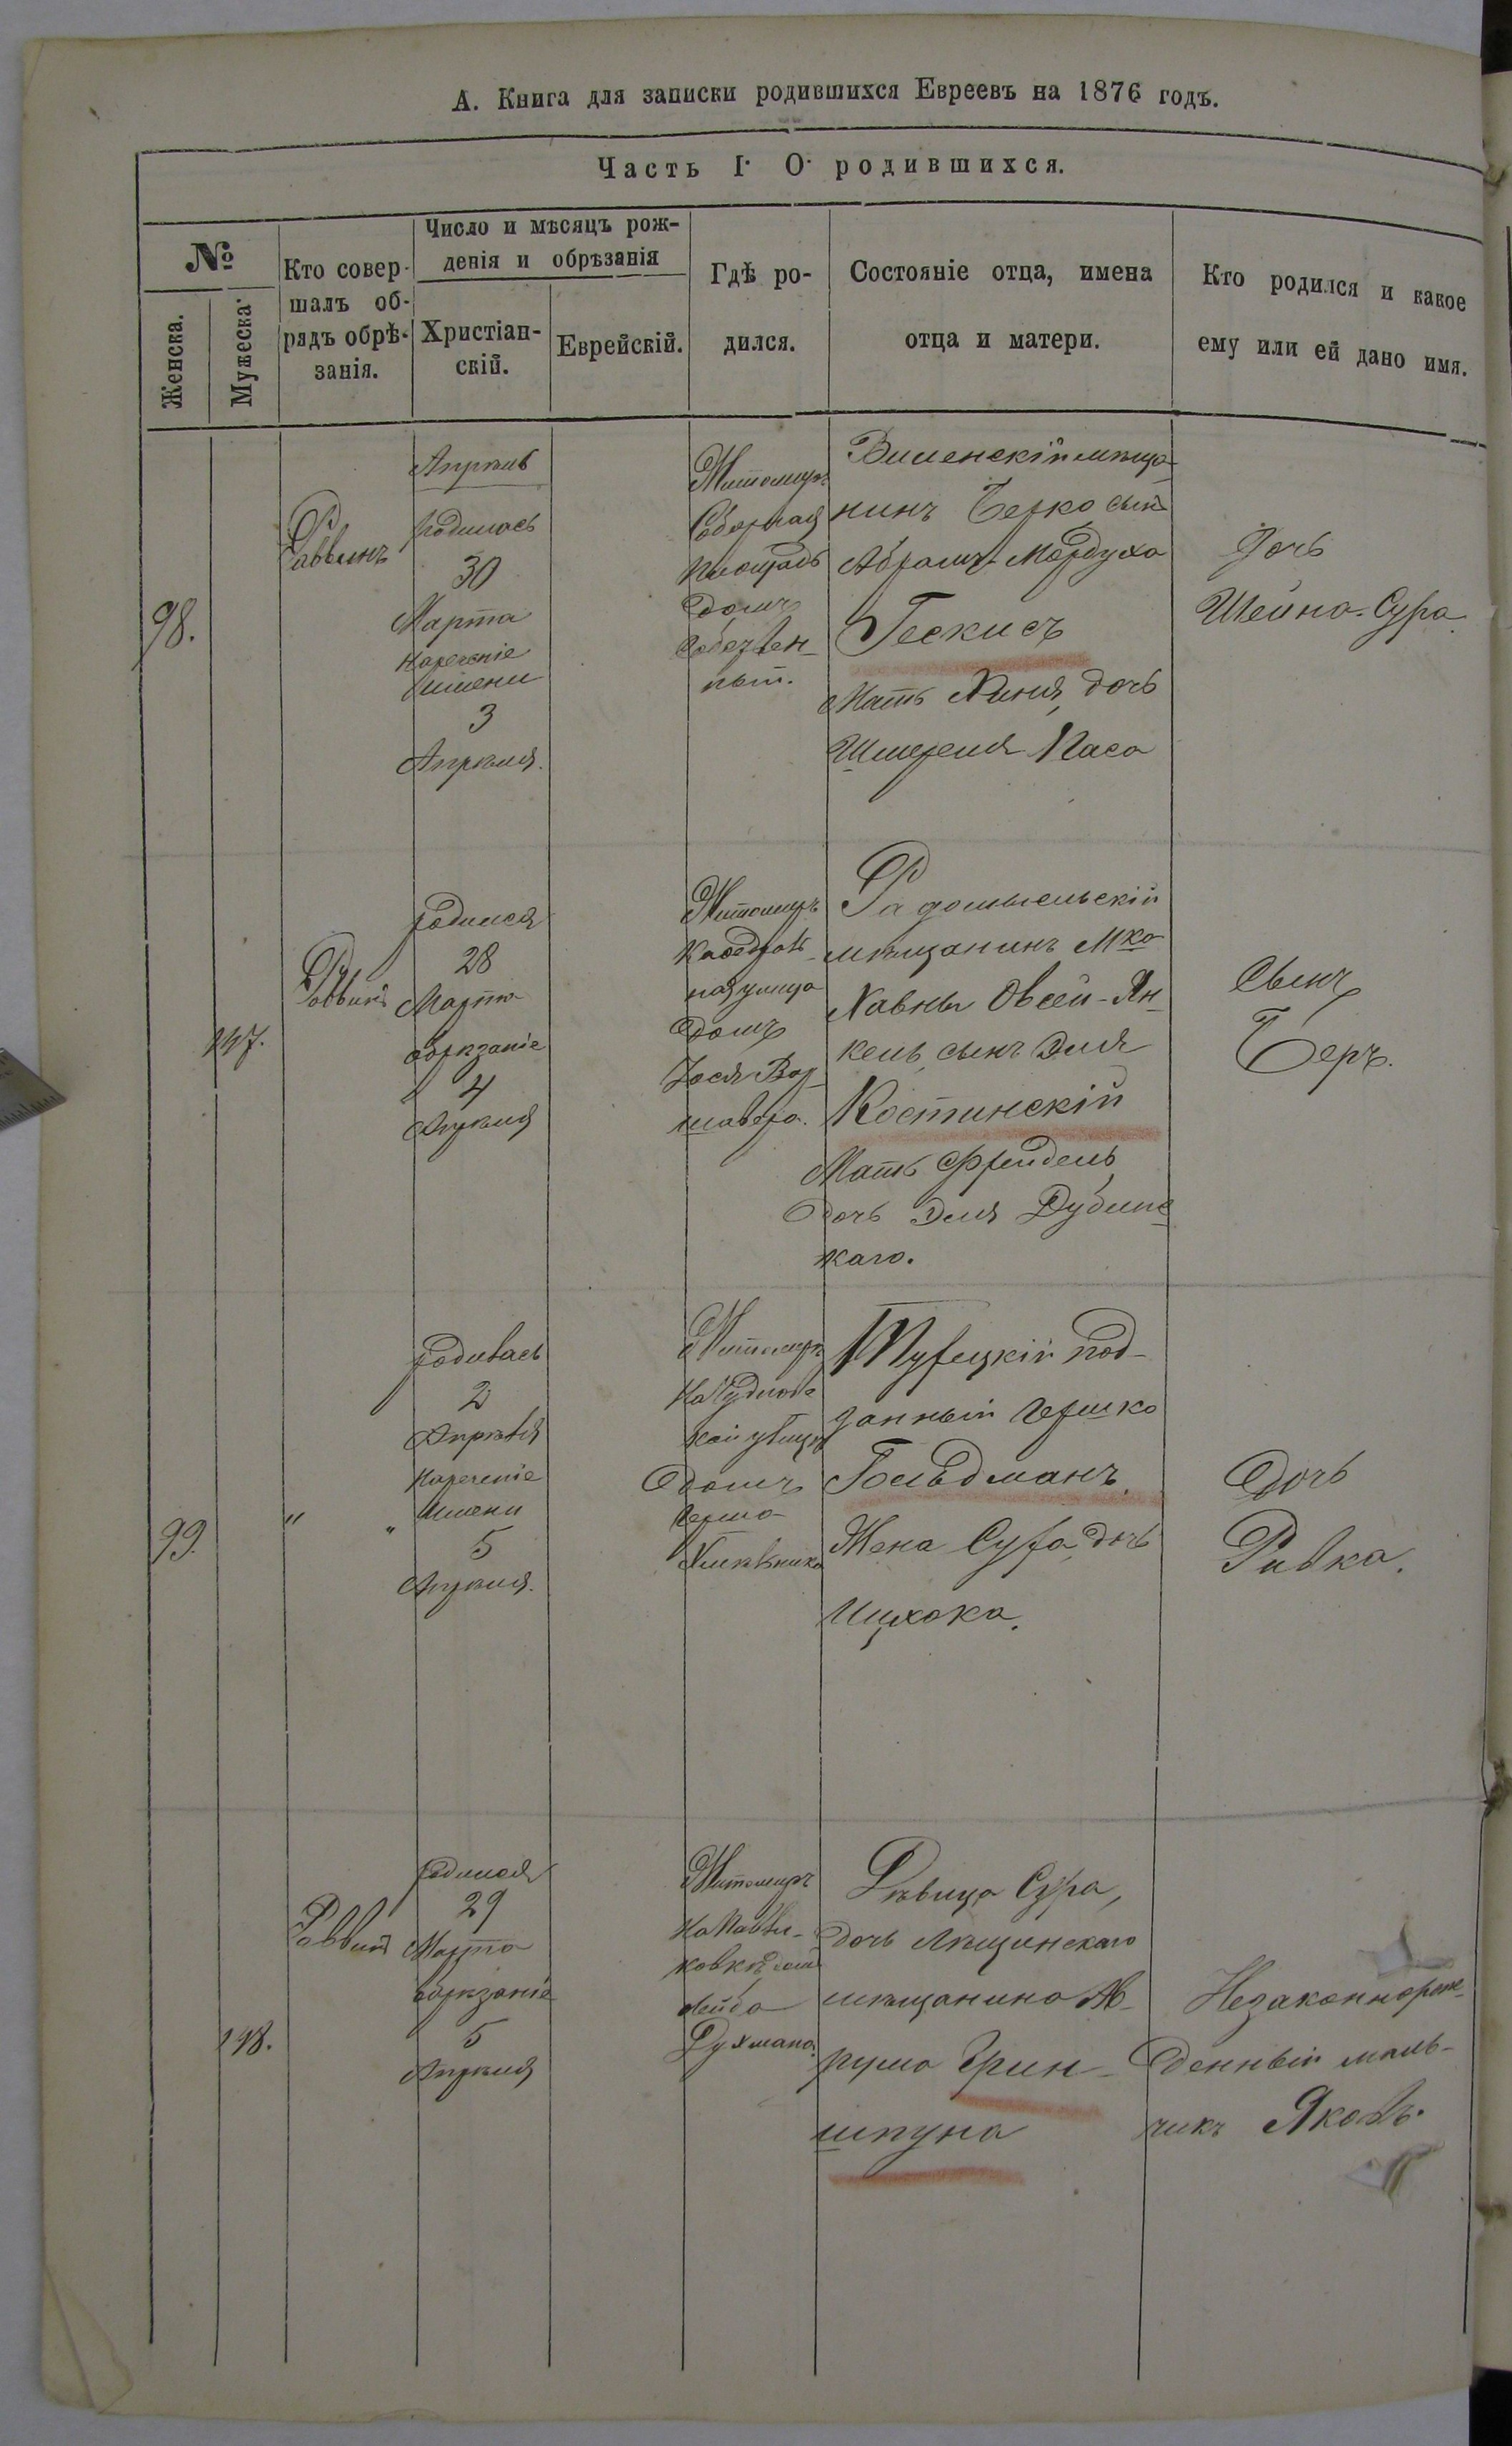 А. Книга для записки родившихся Евреевъ на 1876 годъ.
Часть I. О родившихся.
№
Женска.
Мужеска.
Кто совер-
шалъ об-
рядъ обрѣ-
занія.
Число и мѣсяцъ рож-
денія и обрѣзанія
Христіан-
скій.
Еврейскій.
Гдѣ ро-
дился.
Состояніе отца, имена
отца и матери.
Кто родился и какое
ему или ей дано имя.
98.
Раввинъ
Апрѣль
родилась
30
Марта
нареченіе
имени
3
Апрѣля.
Житомиръ
Соборная
площадь
домъ
ный.
Виленскій мѣща-
нинъ Берко сынъ
Абрамъ Мордуха
Гескисъ
Мать Хиня, дочь
Шмереля Паса
Дочь
Шейна-Сура
147.
Раввинъ
родился
28
Марта
обрѣзаніе
4
Апрѣля
Житомиръ
Кафедраль-
ная улица
домъ
Іося Вар-
шавера.
Радомысльскій
мѣщанинъ Мка
Хавны Овсей-Ян-
кель, сынъ Эля
Костинскій
Мать Фрейдель
дочь Эля Дубинс-
каго.
Сынъ
Беръ.
99.
" "
родилась
2
Апрѣля
Нареченіе
Имени
5
Апрѣля.
Житомиръ
На Чуднов-
ской улицѣ
домъ
Герша
Хмѣльника
Турецкій под-
данный Гершко
Гольдманъ.
Жена Сура, дочь
Ицхока.
Дочь
Ривка.
148.
Раввинъ
родился
29
Марта
обрѣзаніе
5
Апрѣля
Житомиръ
На Павли-
ковкѣ домъ
Лейба
Духмана.
Дѣвица Сура,
дочь Лѣщинскаго
мѣщанина Ав-
рума Грин-
шпуна
Незаконнорож-
денный маль-
чикъ Яковъ.